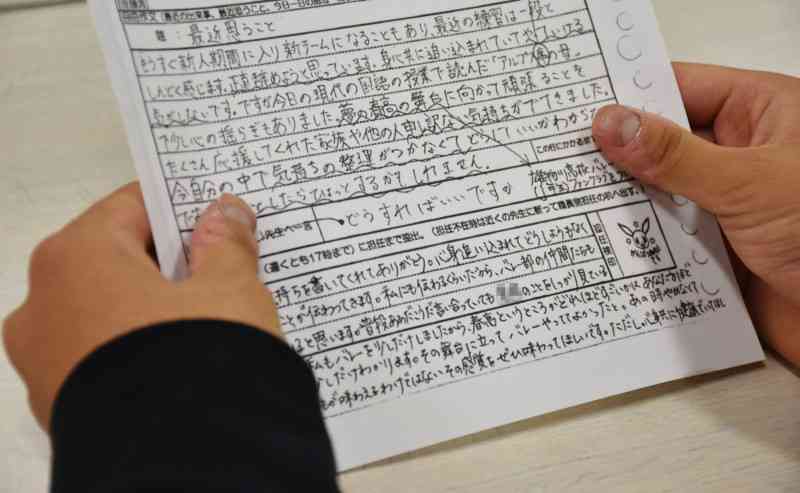 題：最近思うこと
もうすぐ新人期間に入り新チームになることもあり、最近の練習は一段と
しんどく感じます。正直諦めようと思っています。身心共に追い込まれていて
ないです。ですが今日の現代の国語の授業で読んだ「アルプス
少し心の揺らぎもありました。夢の春高の舞台に向かって頑張ることを
たくさん応援してくれた家族や他の人に申し訳ない気持ちがでてきました。
今自分の中で気持ちの整理がつかなくてどうしていいかわからない
としたらひょっとするかもしれません。
この社にかかるま
先生へ一言
どうすればいいですか
(遅くとも17時まで)に担任まで提出。(担任不在時は近くの先生に断って職員室担任の机へ出す。)
担任検印
持ちを書いてくれてありがとう。心身追い込まれてどうしようもなく
ことが伝わってきます。私にも伝わるくらいだから、バレー部の仲間たちも
ると思います。普段あれこれ言い合っていても
のことをしっかり見ている
もバレーを少しだけしましたから、春高というところがどれほどすごいかは
あなたほど
しだけわかります。その舞台に立って、バレーやっててよかったと、あの時やめなくて
が味わえるわけではないその感覚をぜひ味わってほしいです。ただし、心身共に健康でいてほし